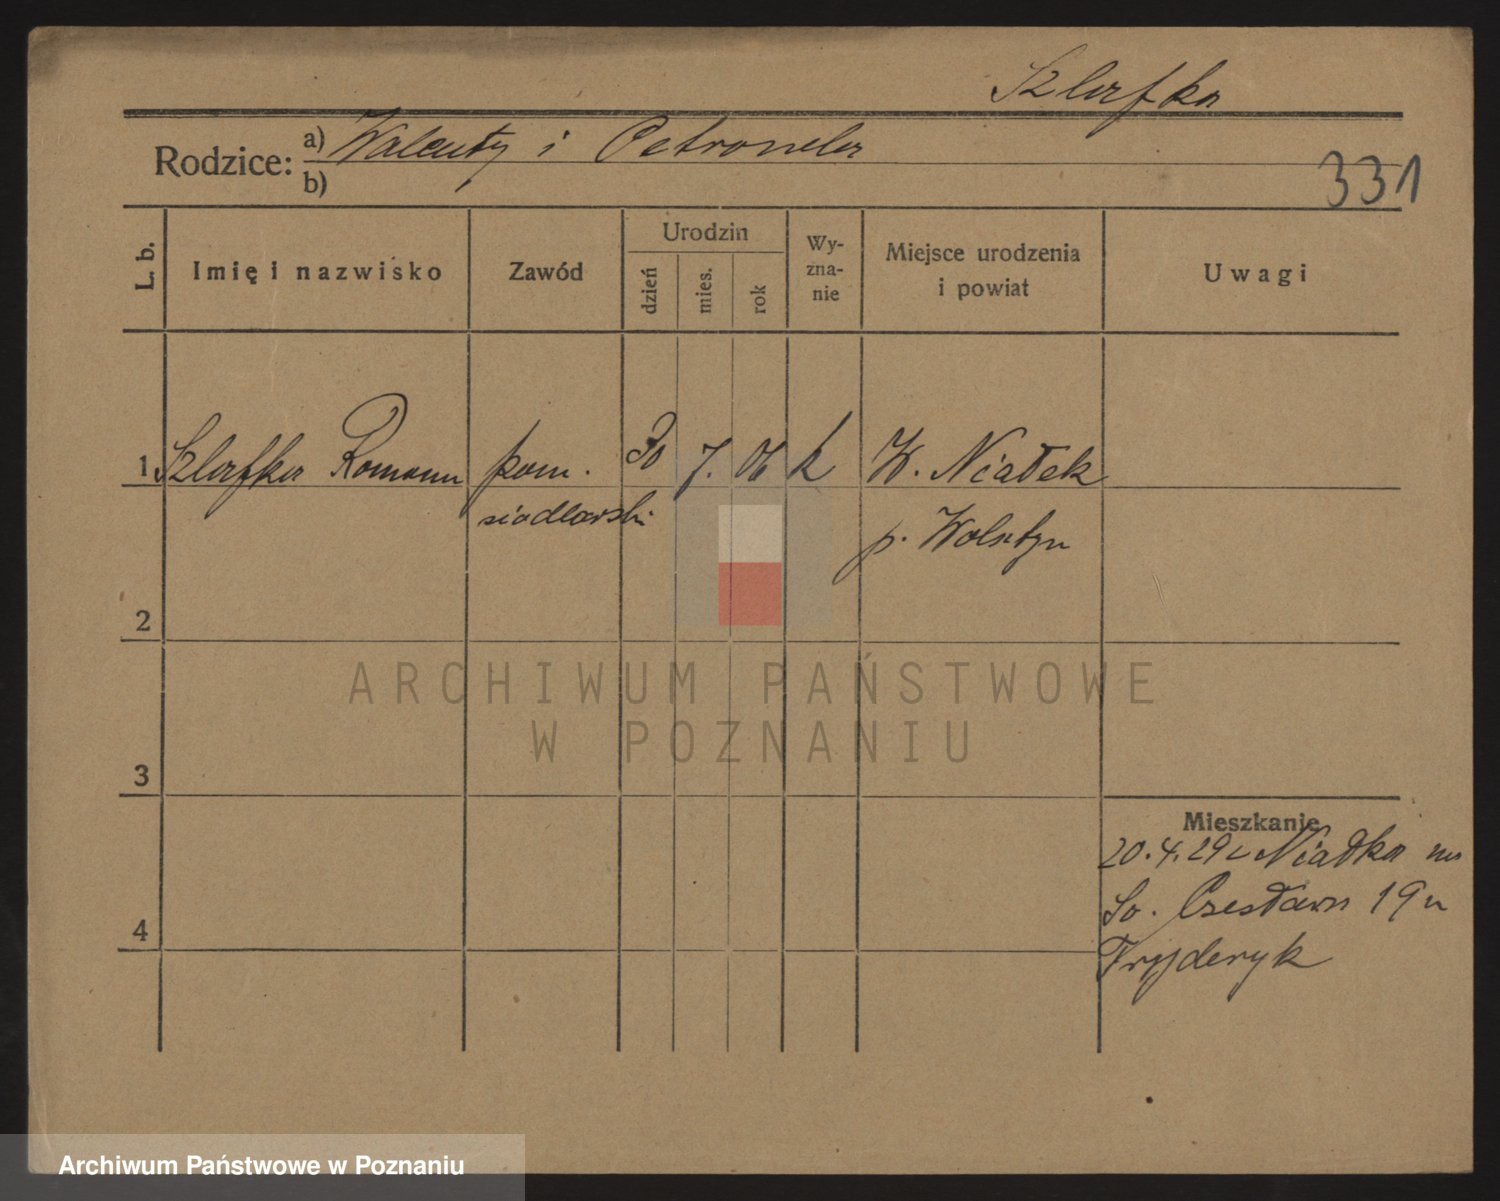 Szlafka
Rodzice: a) Walenty i Petronela
b)
331
L. b.
Imię i nazwisko
Zawód
Urodzin
dzień
mies.
rok
Wy-
zna-
nie
Miejsce urodzenia
i powiat
Uwagi
1 Szlafka Roman pom. 30 7. 06 k W. Niałek
siodlarski p. Wolsztyn
2
ARCHIWUM PAŃSTWOWE
W POZNANIU
3
Mieszkanie
20.4.29 z Niałka na
Św. Czesława 19 u
4
Fryderyk
Archiwum Państwowe w Poznaniu